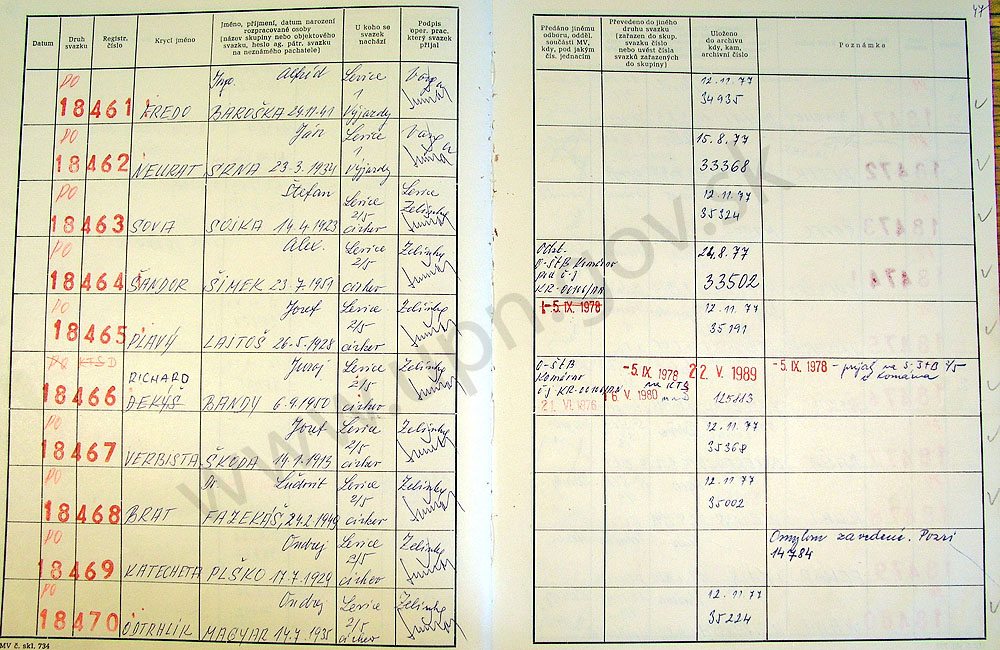 44
Datum
Druh svazku
Registr. číslo
Krycí jméno
Jméno, příjmení, datum narození
rozpracované osoby
(název skupiny nebo objektového
svazku, heslo ag. pátr. svazku
na neznámého pachatele)
U koho se
svazek
nachází
Podpis
oper. prac.
který svazek
přijal
Předáno jinému
odboru, odděl.
součásti MV,
kdy, pod jakým
čís. jednacím
Převedeno do jiného
druhu svazku
(zařazen do skup.
svazku číslo
nebo uvést čísla
svazků zařazených
do skupiny)
Uloženo
do archivu
kdy, kam,
archivní číslo
Poznámka
PO
18461 FREDO Ing. Alfréd BAROŠKA 24.11.41 Levice 1 Výjazdy
12.11.77
34935
PO
18462 NEURAT Ján SRNA 23.3.1934 Levice 1 Výjazdy
15.8.77
33368
PO
18463 SOVA Štefan SOJKA 14.4.1923 Levice 2/5 cirkev Levice Zelinky
35324
PO
18464 ŠANDOR Alex. ŠIMEK 23.7.1951 Levice 2/5 cirkev Zelinky
Odst.
O-ŠtB Komárno
pod č.j.
24.8.77
33502
PO
18465 PLAVÝ Jozef LAJTOŠ 26.5.1928 Levice 2/5 cirkev Zelinky
-5. IX. 1978
12.11.77
35191
PO KTS D
18466 RICHARD DEKÝŠ Juraj BANDY 6.4.1950 Levice 2/5 cirkev Zelinky
O-ŠtB
Komárno
21. VI. 1976
-5. IX. 1978
na KTS
16. V. 1980
22. V. 1989
125883
-5. IX. 1978
PO
18467 VERBISTA Jozef ŠKODA 14.1.1913 Levice 2/5 cirkev Zelinky
12.11.77
35368
PO
18468 BRAT Dr. Ľudovít FAZEKÁŠ, 24.2.1949 Levice 2/5 cirkev Zelinky
12.11.77
35002
PO
18469 KATECHETA Ondrej PLŠKO 17.7.1929 Levice 2/5 cirkev Zelinky
Omylom zavedené. Pozri
14784
PO
18470 ODTRHLÍK Ondrej MAGYAR 14.7.1935 Levice 2/5 cirkev Zelinky
12.11.77
35224
MV č. skl. 734
www.upn.gov.sk